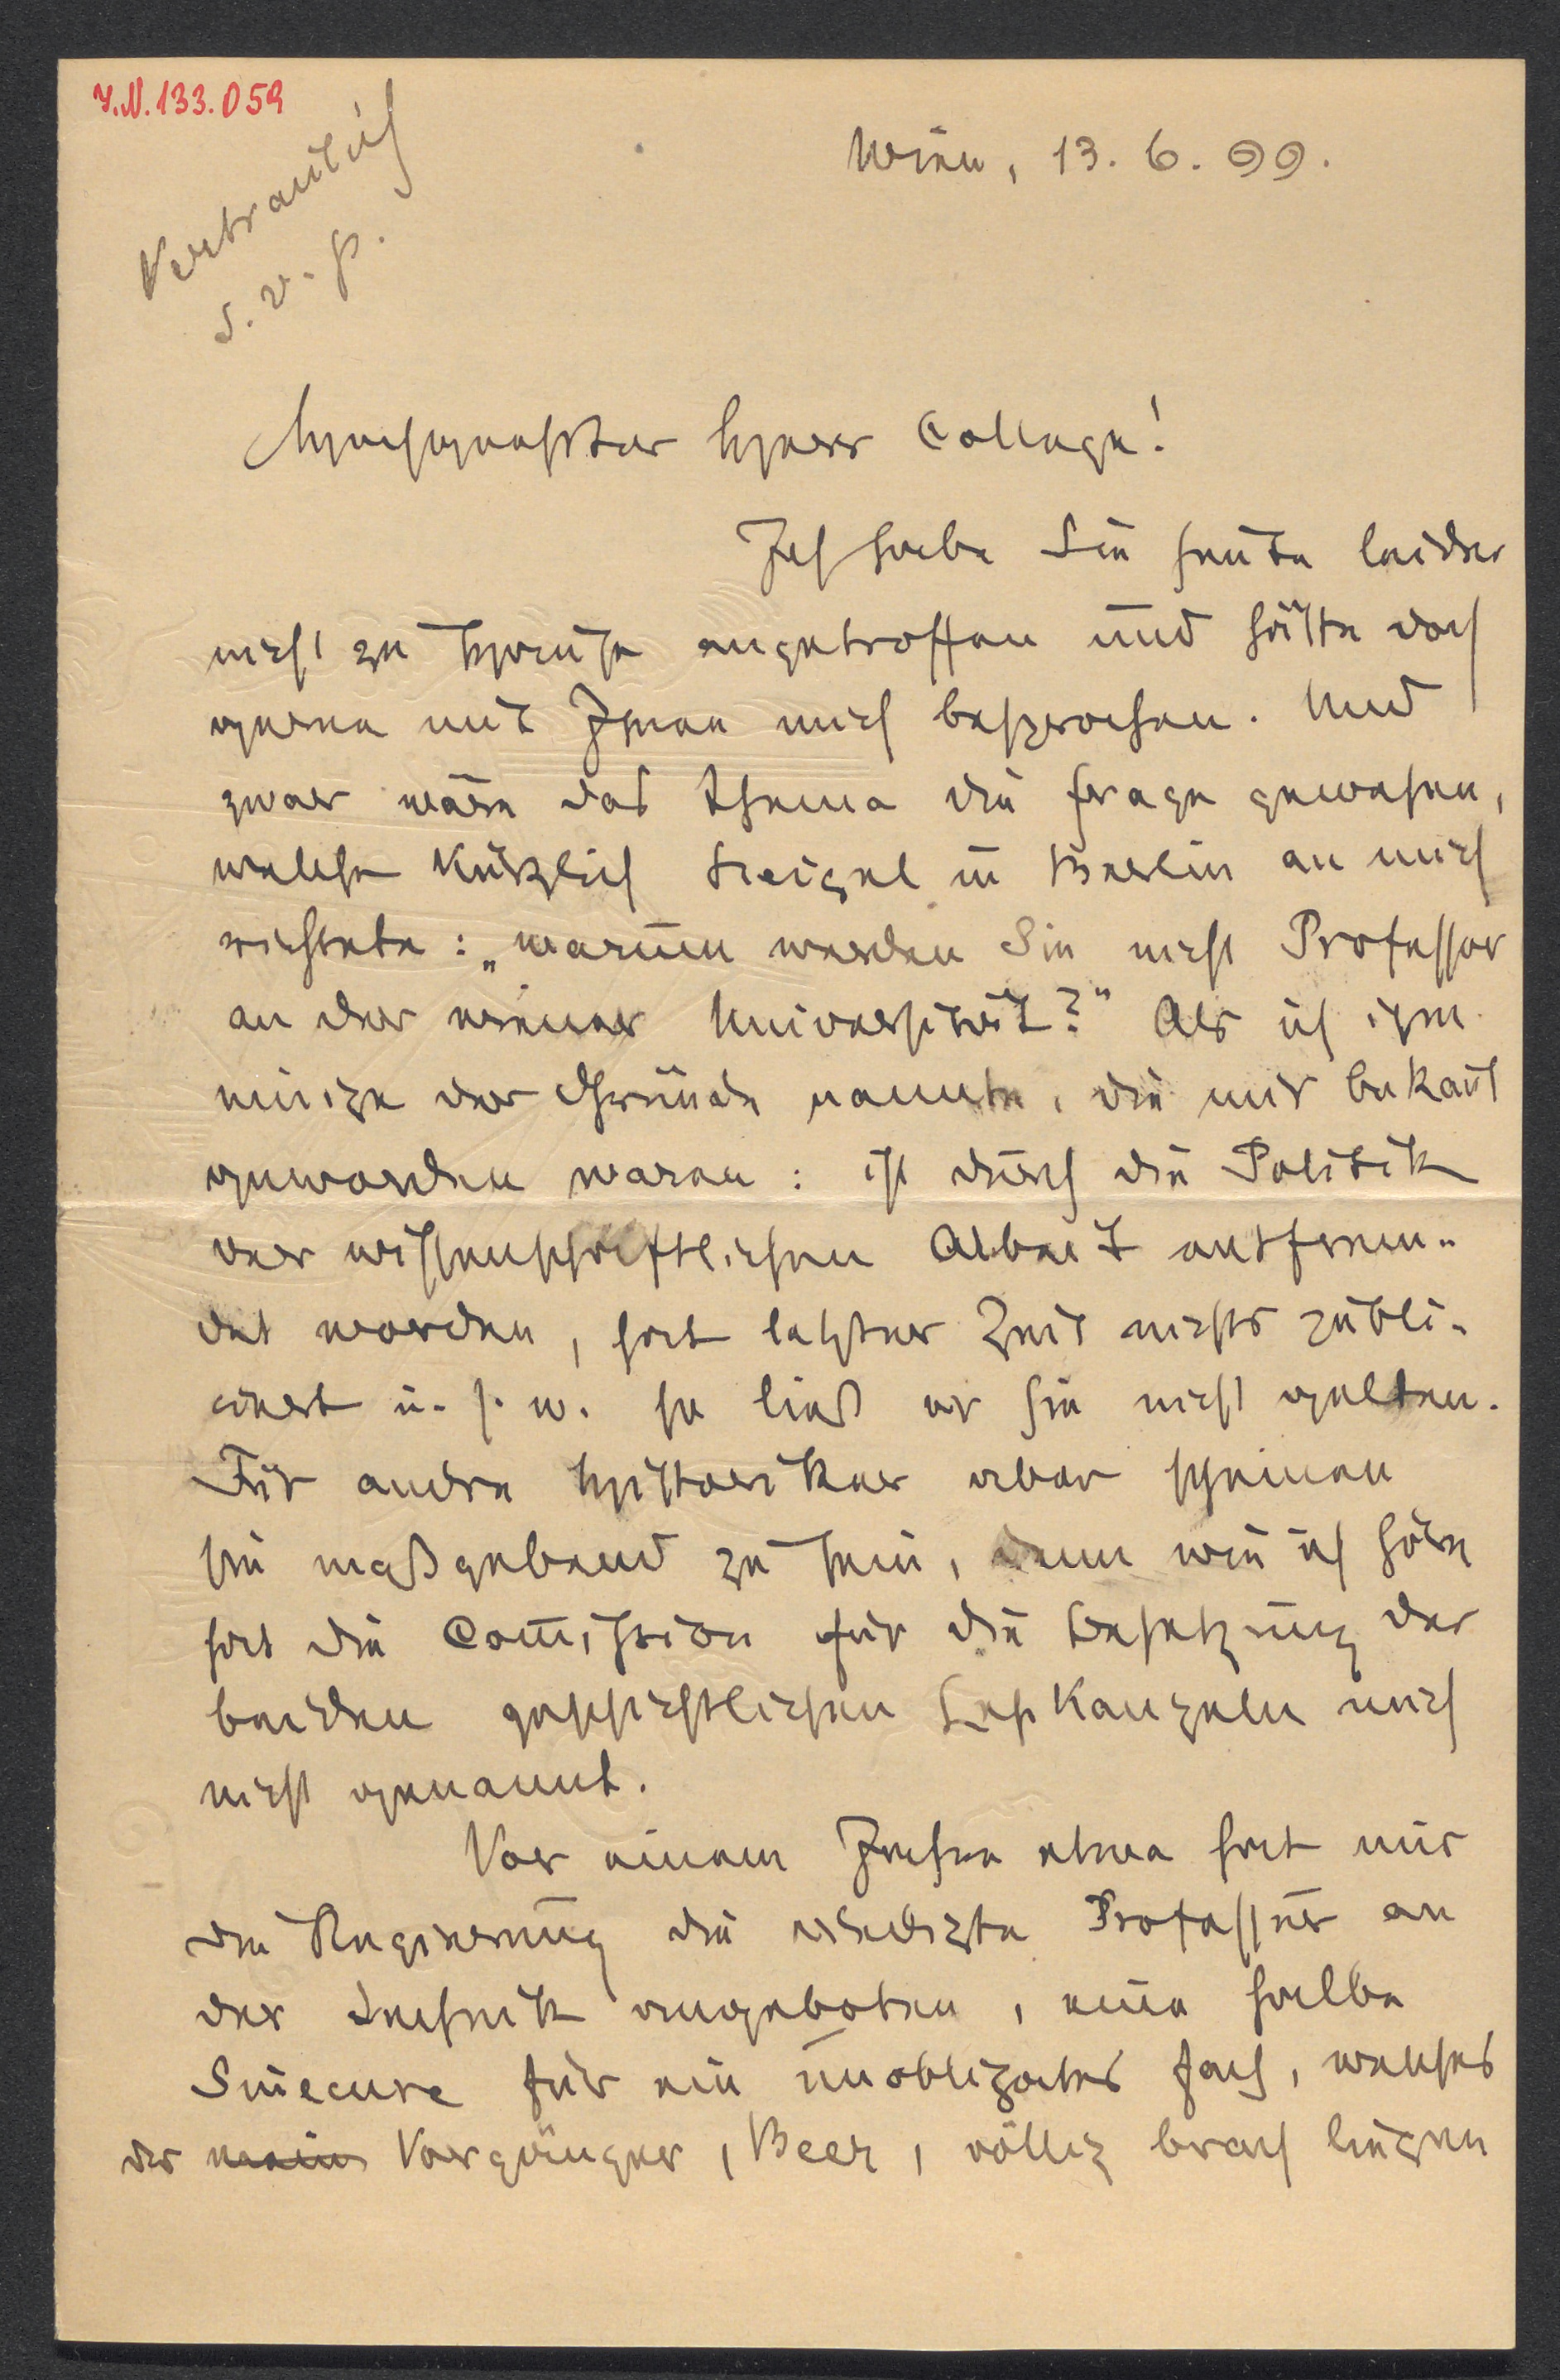 I.N. 133.059
Vertraulich
s. v. p.
Wien, 13. 6. 99.
Hochgeehrter Herr College!
Ich habe Sie heute leider
nicht zu Hause angetroffen und hätte doch
gerne mit Ihnen mich besprochen. Und
zwar wäre das Thema die Frage gewesen,
welche kürzlich in Berlin an mich
richtete: „warum werden Sie nicht Professor
an der wiener Universität?" Als ich ihm
einige der Gründe nannte, die mir bekañt
geworden waren: ist durch die Politik
der wissenschaftlichen Arbeit entfrem-
det worden, hat letzter Zeit nichts publi-
ciert u. s. w. so ließ er sie nicht gelten.
Für andre Historiker aber scheinen
sie maßgebend zu sein, denn wie ich höre
hat die Com̅ission für die Besetzung der
beiden geschichtlichen Lehrkanzeln mich
nicht genannt.
Vor einem Jahre etwa hat mir
die Regierung die erledigte Professur an
der Technik angeboten, eine halbe
Sinecure für ein unobligates Fach, welches
der mein Vorgänger, Beer, völlig brach liegen